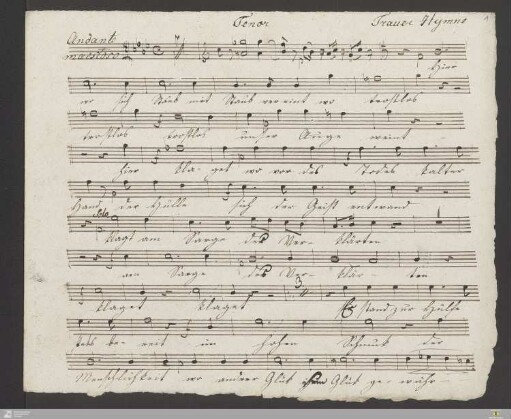 Tenor Trauer Hymne
Andante
maestoso
Hier
wo sich Staub mit Staub vereint wo trostlos
trostlos trostlos unser Auge weint
hier klaget wo vor des Todes kalter
Hand der Hülle sich der Geist entwand
Solo
klagt am Sarge des Verklärten
am Sarge des Verklärten
3
klaget klaget stand zur Hülfe
stets bereit im hohen Schmuck der
Menschlichkeit wo andrer Glük Glük gewähr